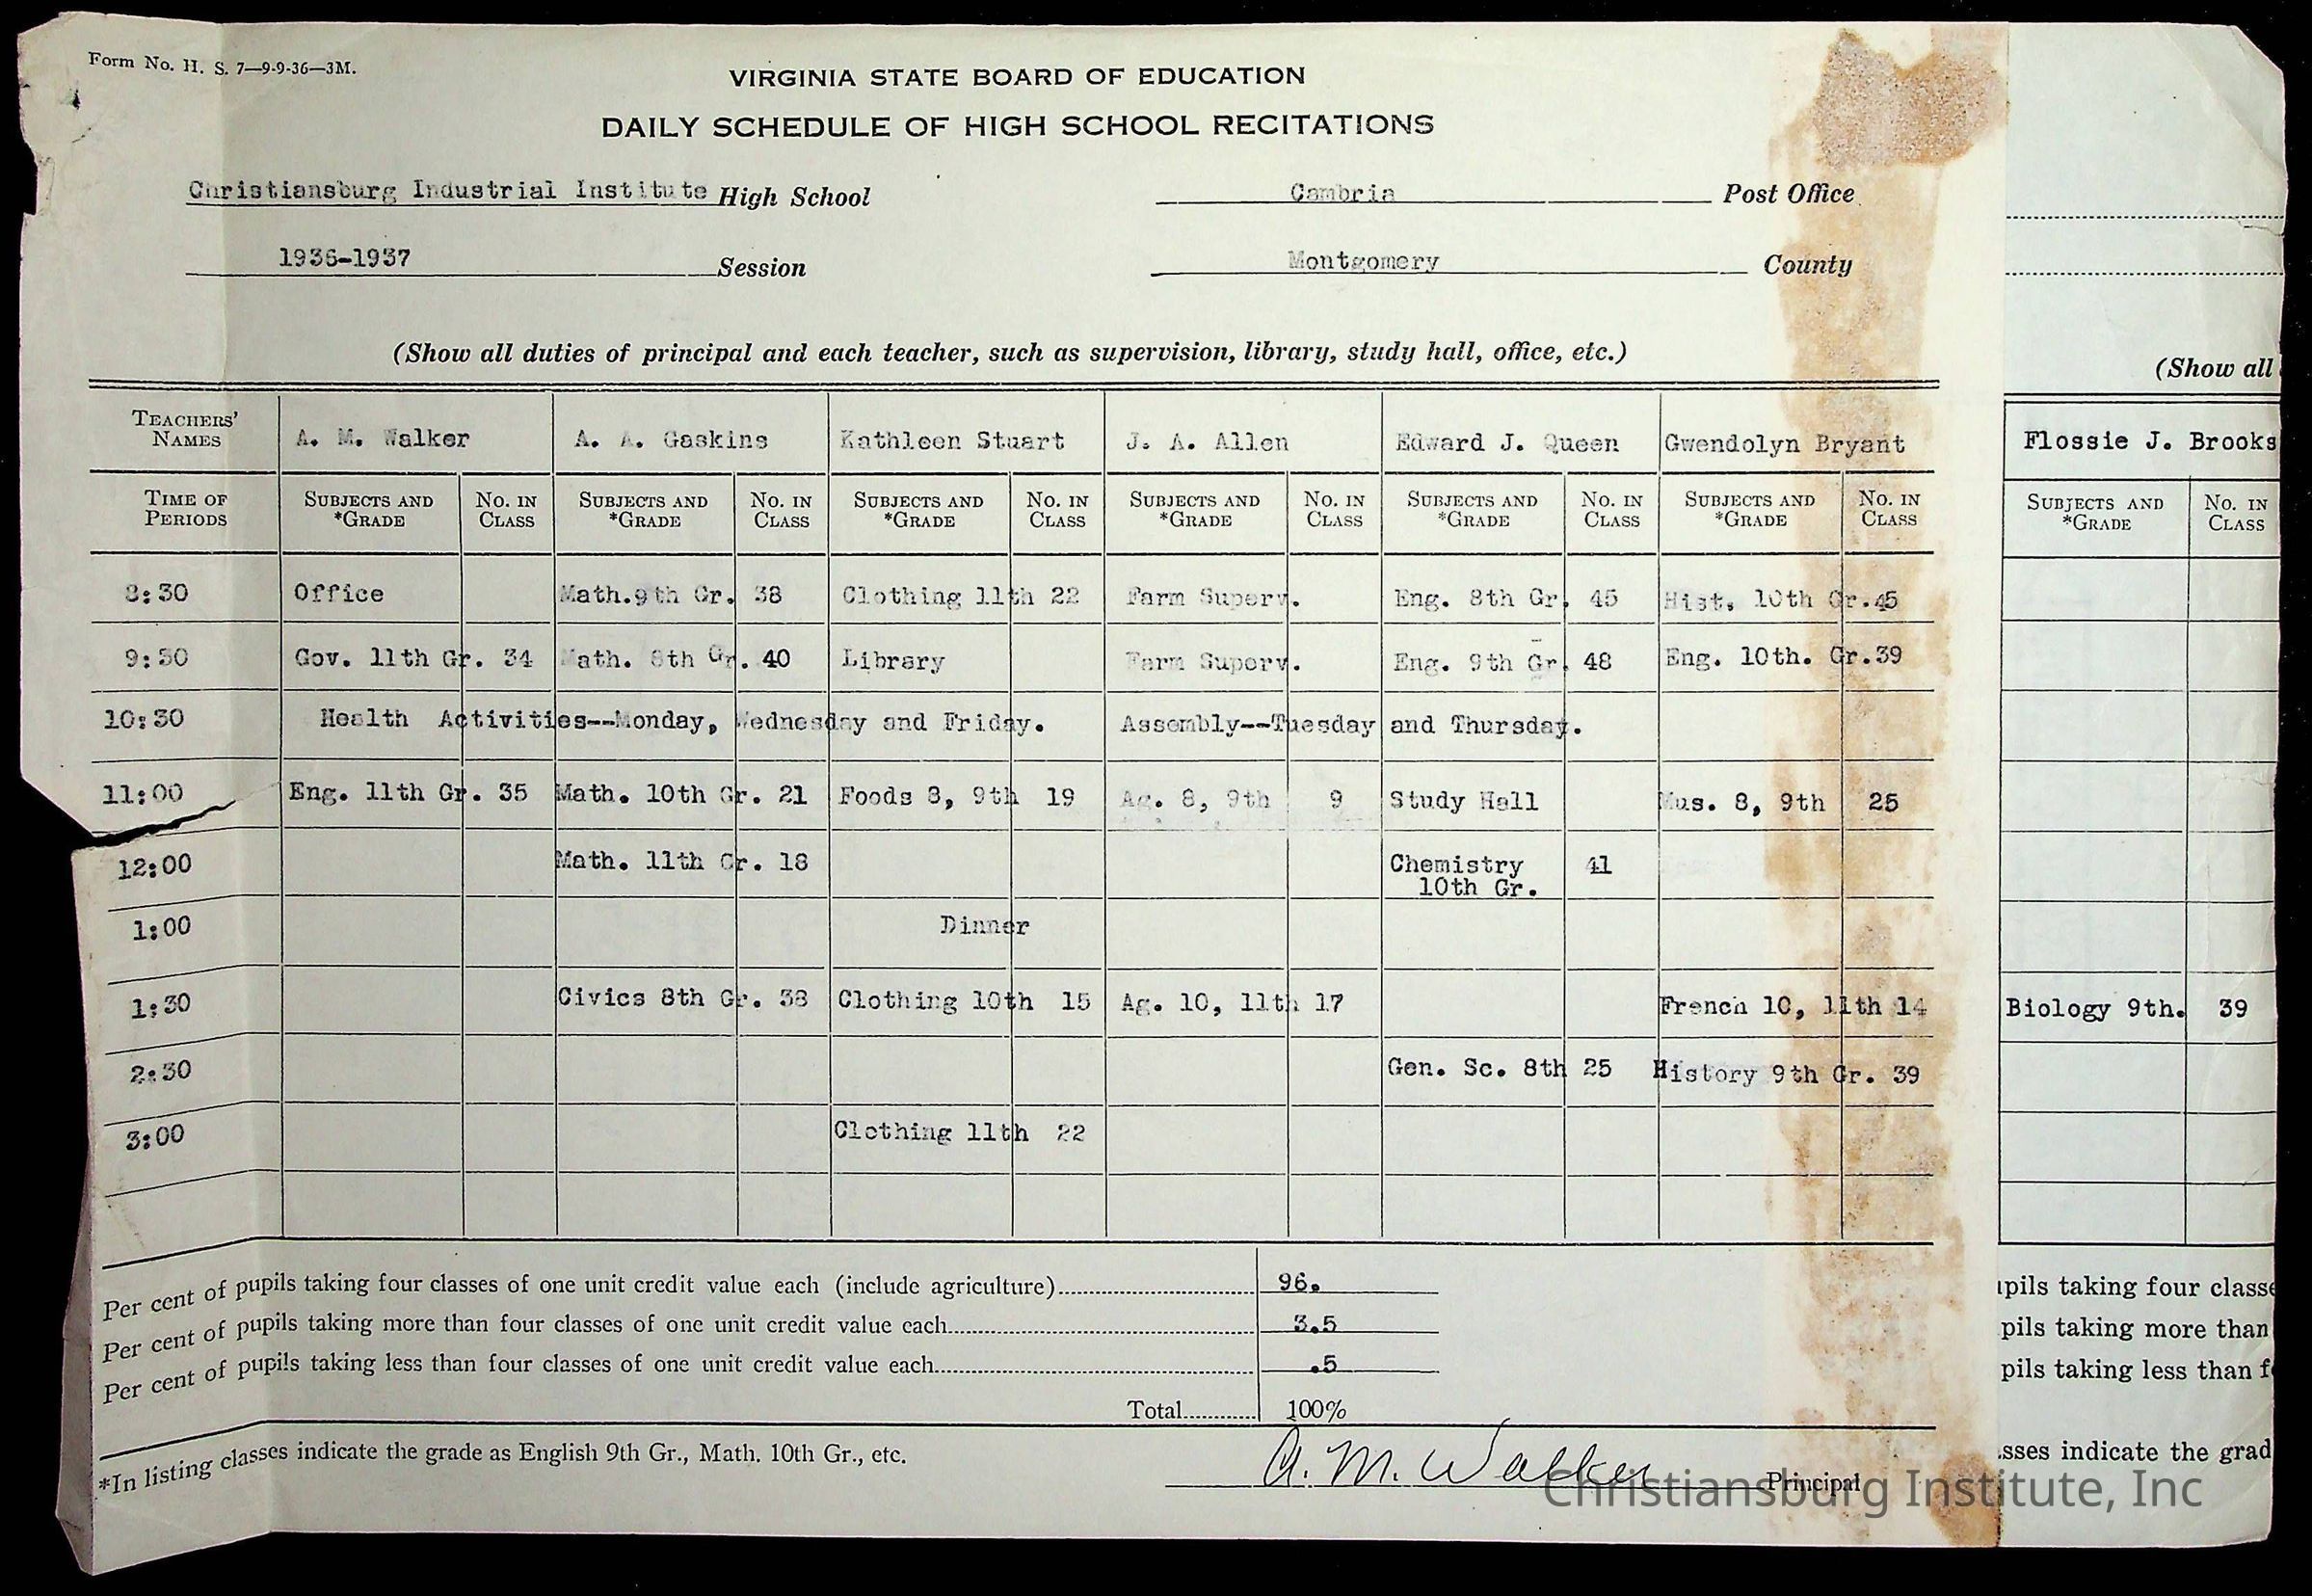 Form No. H. S. 7—9-9-36—3M.
VIRGINIA STATE BOARD OF EDUCATION
DAILY SCHEDULE OF HIGH SCHOOL RECITATIONS
Christiansburg Industrial Institute High School Cambria Post Office
1936-1937 Session Montgomery County
(Show all duties of principal and each teacher, such as supervision, library, study hall, office, etc.) (Show all
TEACHERS' NAMES A. M. Walker A. A. Gaskins Kathleen Stuart J. A. Allen Edward J. Queen Gwendolyn Bryant Flossie J. Brooks
TIME OF PERIODS SUBJECTS AND *GRADE NO. IN CLASS SUBJECTS AND *GRADE NO. IN CLASS SUBJECTS AND *GRADE NO. IN CLASS SUBJECTS AND *GRADE NO. IN CLASS SUBJECTS AND *GRADE NO. IN CLASS SUBJECTS AND *GRADE NO. IN CLASS SUBJECTS AND *GRADE NO. IN CLASS
8:30 Office Math.9th Gr. 38 Clothing 11th 22 Farm Superv. Eng. 8th Gr. 45 Hist. 10th Gr.45
9:30 Gov. 11th Gr. 34 Math. 8th Gr. 40 Library Farm Superv. Eng. 9th Gr. 48 Eng. 10th. Gr.39
10:30 Health Activities--Monday, Wednesday and Friday. Assembly--Tuesday and Thursday.
11:00 Eng. 11th Gr. 35 Math. 10th Gr. 21 Foods 8, 9th 19 Ag. 8, 9th 9 Study Hall Mus. 8, 9th 25
12:00 Math. 11th Gr. 18 Chemistry 10th Gr. 41
1:00 Dinner
1:30 Civics 8th Gr. 38 Clothing 10th 15 Ag. 10, 11th 17 French 10, 11th 14 Biology 9th. 39
2:30 Gen. Sc. 8th 25 History 9th Gr. 39
3:00 Clothing 11th 22
Per cent of pupils taking four classes of one unit credit value each (include agriculture) 96. pils taking four classe
Per cent of pupils taking more than four classes of one unit credit value each 3.5 pils taking more than
Per cent of pupils taking less than four classes of one unit credit value each .5 pils taking less than f
Total 100%
*In listing classes indicate the grade as English 9th Gr., Math. 10th Gr., etc. sses indicate the grad
A. M. Walker Principal
Christiansburg Institute, Inc